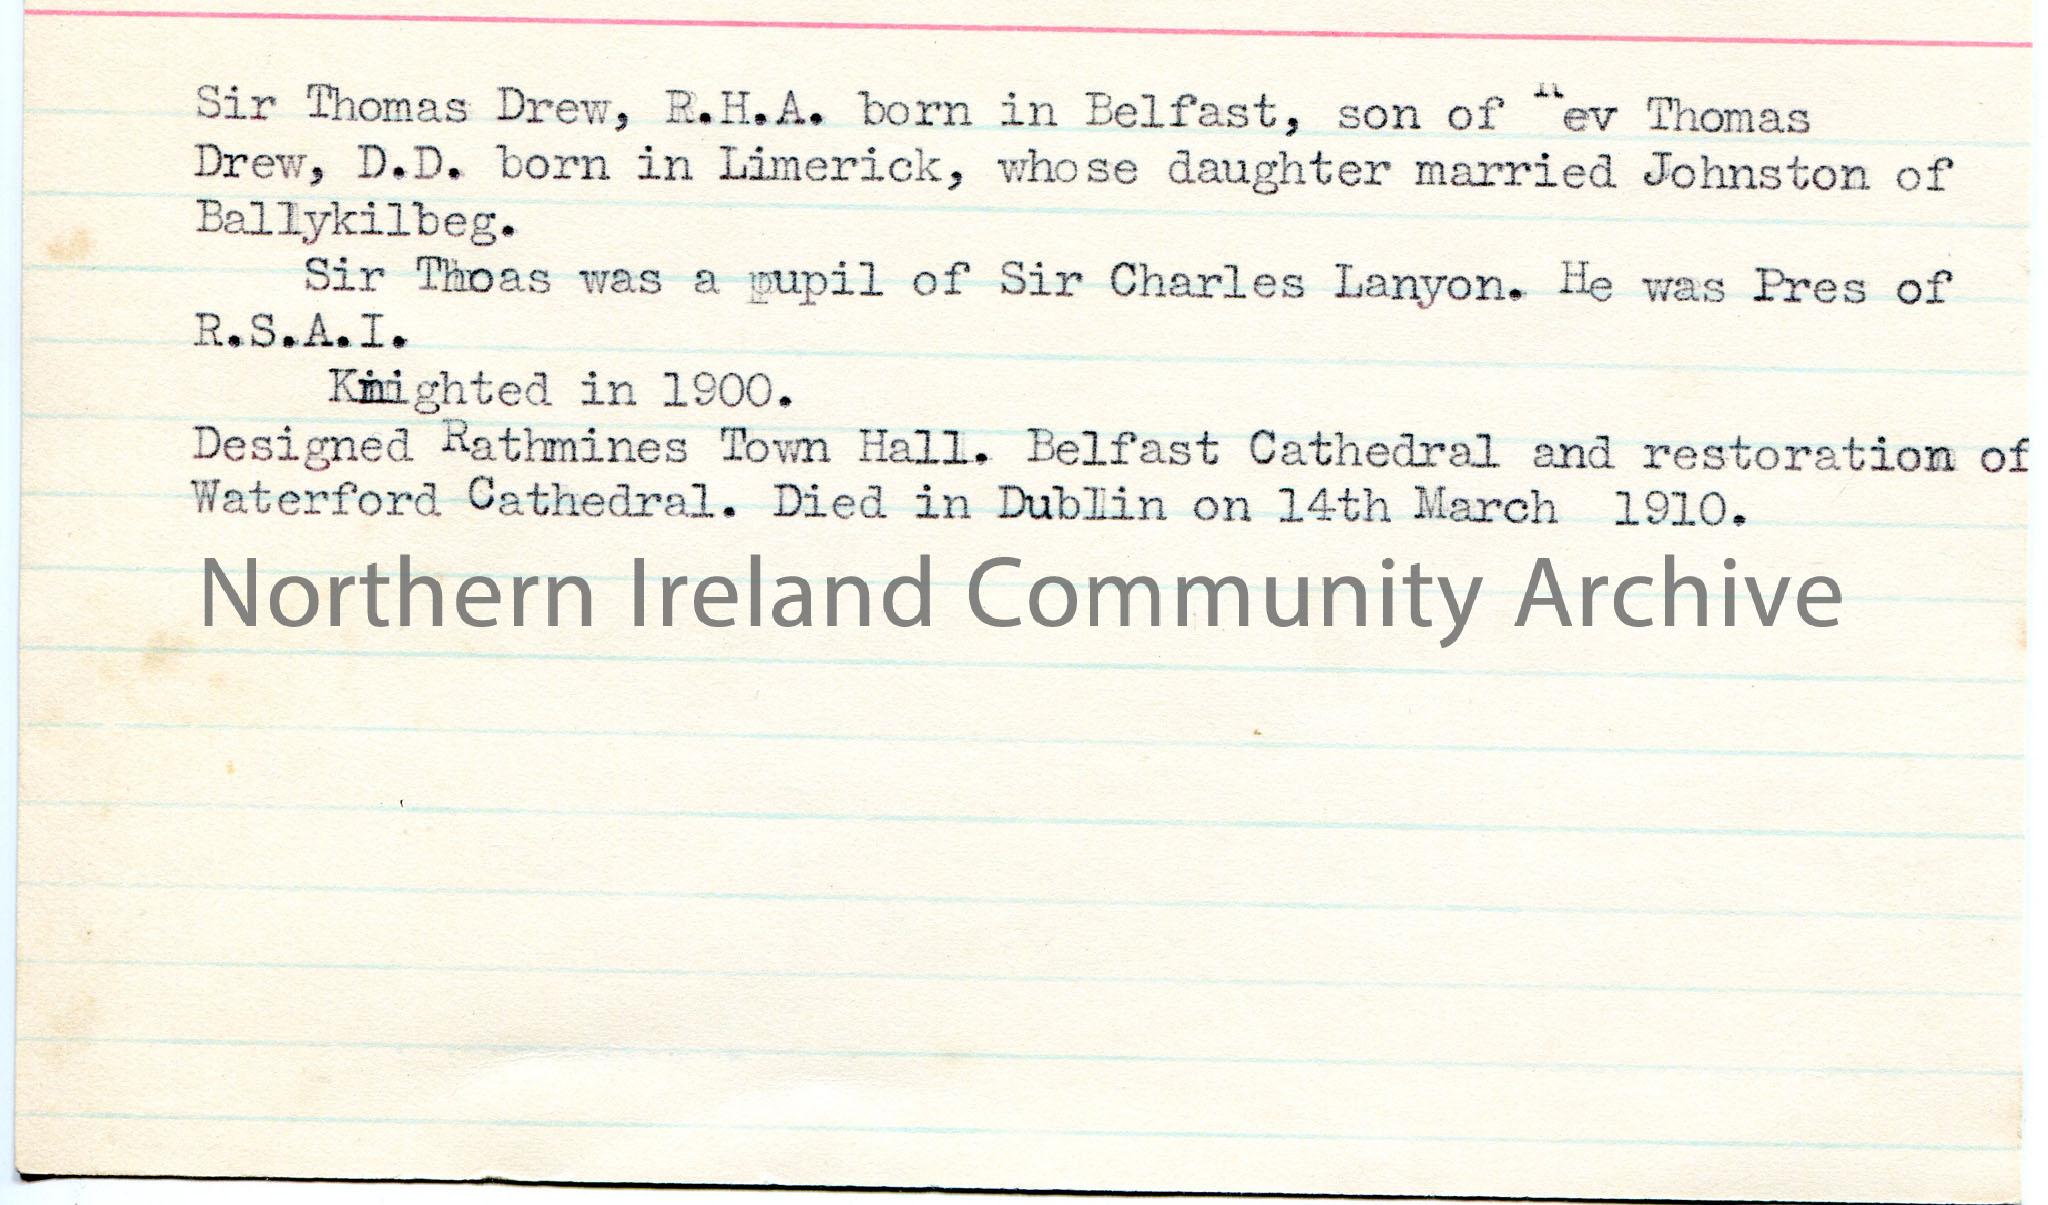 Sir Thomas Drew, R.H.A. born in Belfast, son of Rev Thomas
Drew, D.D. born in Limerick, whose daughter married Johnston of
Ballykilbeg.
Sir Thoas was a pupil of Sir Charles Lanyon. He was Pres of
R.S.A.I.
Knighted in 1900.
Designed Rathmines Town Hall. Belfast Cathedral and restoration of
Waterford Cathedral. Died in Dublin on 14th March 1910.
Northern Ireland Community Archive